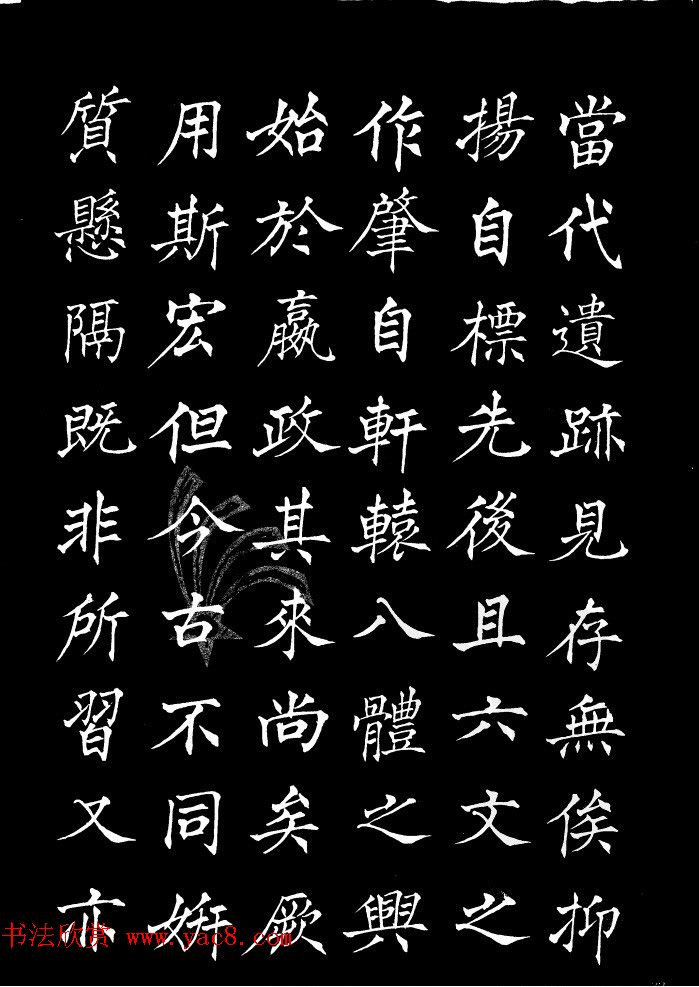 當代遺跡見存無俟抑
揚自標先後且六文之
作肇自軒轅八體之興
始於嬴政其來尚矣厥
用斯宏但今古不同妍
質懸隔既非所習又亦
书法欣赏 www.yac8.com